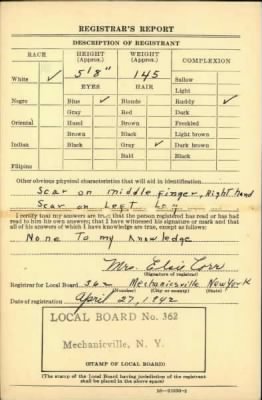 REGISTRAR'S REPORT
DESCRIPTION OF REGISTRANT
RACE HEIGHT (Approx.) WEIGHT (Approx.) COMPLEXION
5' 8" 145
White ✓ Sallow
EYES HAIR Light
Negro Blue ✓ Blonde Ruddy ✓
Gray Red Dark
Oriental Hazel Brown Freckled
Brown Black Light brown
Indian Black Gray ✓ Dark brown
Bald Black
Filipino
Other obvious physical characteristics that will aid in identification
Scar on middle finger, Right hand
Scar on Left Leg
I certify that my answers are true; that the person registered has read or has had
read to him his own answers; that I have witnessed his signature or mark and that
all of his answers of which I have knowledge are true, except as follows:
None To my Knowledge
Mrs. Elsie
(Signature of registrar)
Registrar for Local Board 362 Mechanicville New York
(Number) (City or county) (State)
Date of registration April 27, 1942
LOCAL BOARD No. 362
Mechanicville, N. Y.
(STAMP OF LOCAL BOARD)
(The stamp of the Local Board having jurisdiction of the registrant
shall be placed in the above space)